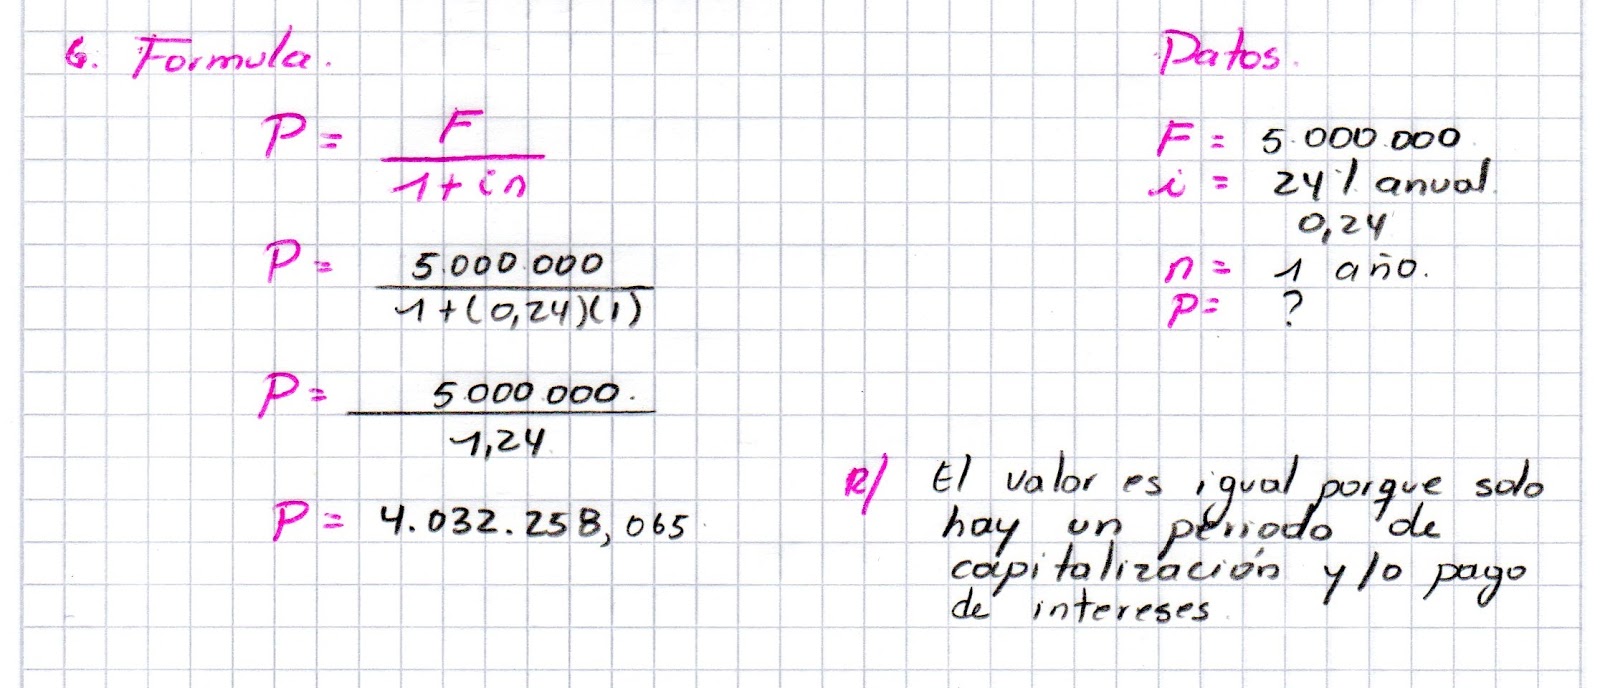 6. Formula.
P = F
1 + in
P = 5.000.000
1 + (0,24)(1)
P = 5.000.000.
1,24
P = 4.032.258,065
Datos.
F = 5.000.000
i = 24% anual.
0,24
n = 1 año.
P = ?
R/ El valor es igual porque solo
hay un periodo de
capitalización y/o pago
de intereses.